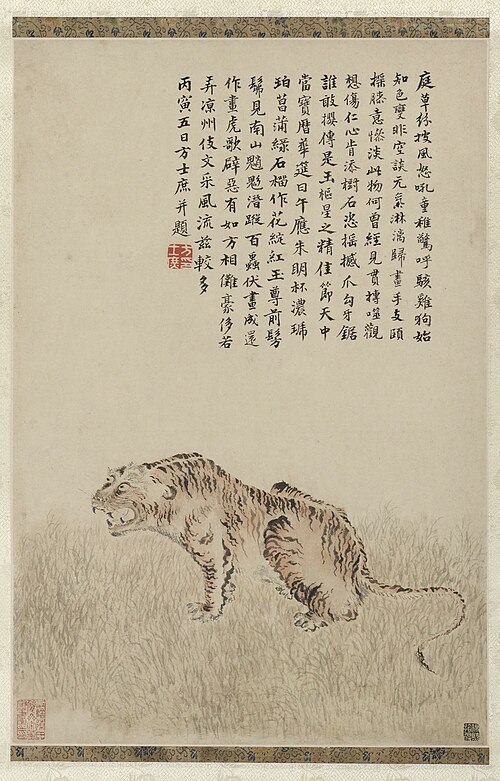 庭草紛披風怒吼童稚驚呼駭雞狗始
知色變非空談元氣淋漓歸畫手支頤
膝意慘淡此物何曾經見貫搏噬觀
想傷仁心肯添樹石恣搖撼爪勾牙鋸
誰敢攖傳是玉樞星之精佳節天中
當寶曆華筵日午應朱明杯濃琥
珀菖蒲綠石榴作花綻紅玉尊前髣
髴見南山魑魅潛蹤百蟲伏畫成還
作畫虎歌辟惡有如方相儺豪侈若
弄涼州伎文采風流茲較多
丙寅五日方士庶并題